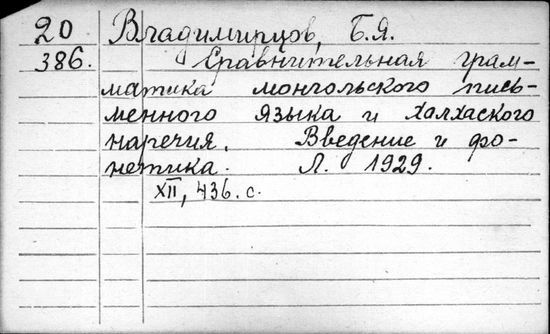 20 Владимирцов, Б.Я.
386. Сравнительная грам-
матика монгольского пись-
менного языка и халхаского
наречия. Введение и фо-
нетика. Л. 1929.
XII, 436. с.